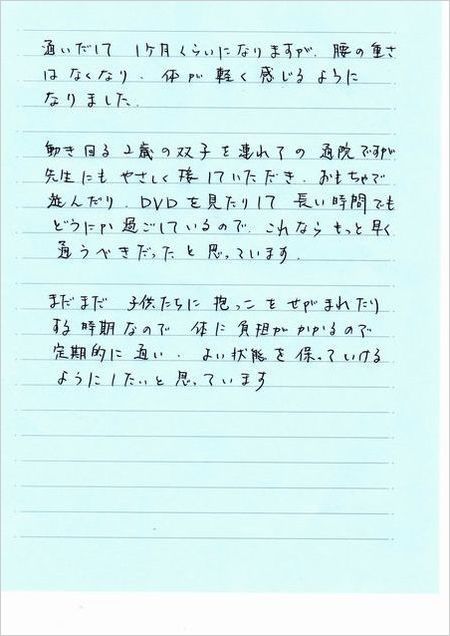 通いだして 1ヶ月くらいになりますが、腰の重さ
はなくなり、体が軽く感じるように
なりました。
動き回る2歳の双子を連れての通院ですが
先生にもやさしく接していただき、おもちゃで
遊んだり、DVDを見たりして 長い時間でも
どうにか過ごしているので、これならもっと早く
通うべきだったと思っています。
まだまだ 子供たちに抱っこをせがまれたり
する時期なので 体に負担がかかるので
定期的に通い、よい状態を保っていける
ようにしたいと思っています